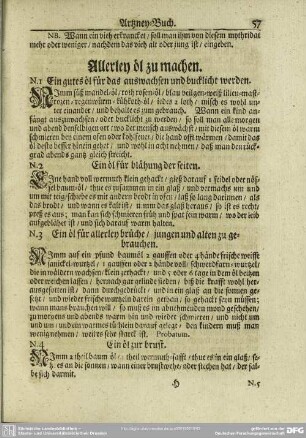 Artzney-Buch. 57
NB. Wann ein vieh erkrancket / soll man ihm von diesem mythridat
mehr oder weniger / nachdem das vieh alt oder jung ist / eingeben.
Allerley öl zu machen.
N.1 Ein gutes öl für das auswachsen und bucklicht werden.
NImm süß mandel-öl / roth rosen-öl / blau veilgen- weiß lilien-
unter einander / und behalte es zum gebrauch. Wann ein kind an-
fangt auszuwachsen oder bucklicht zu werden / so soll man allemorgen
und abend dasselbige ort / wo der mensch auswächst / mit diesem öl warm
schmieren bey einem ofen oder kohlfeuer / die hand offt wärmen / damit das
öl desto besser hinein gehet / und wohl in acht nehmen / daß man den rück-
grad abends gang gleich streicht.
N.2 Ein öl für blähung der seiten.
EIne hand voll wermuth klein gehackt / gieß darauf 1 seidel oder nössel
baum-öl / thue es zusammen in ein glaß / und vermachs um und
um mit teig schiebe es mit andern brodt in ofen / laß so lang darinnen / als
das brodt / und wann es kalt ist / nimm das glaß heraus / so ist es recht /
man kan sich schmieren früh und spat sein warm / wo der leib
aufgeblähet ist / und sich darauf warm halten.
N.3 Ein öl für allerley brüche / jungen und alten zu ge-
brauchen.
NImm auf ein pfund baumöl 2 gauffen oder 4 hände frische weisse
sanickel-wurtzel / 1 gauffen oder 2 hände voll / schwerdtkraut-wurtzel /
die in wäldern wachsen / klein gehackt / und 5 oder 6 tage in dem öl beitzen
oder weichen lassen / hernach gar gelinde sieden / daß die krafft wohl her-
ausgesotten ist / dann durchgedruckt / und in ein glaß an die sonnen ge-
setzt / und wieder frische wurtzeln darein gethan / so gehackt seyn müssen;
wann mans brauchen will / so muß es im abnehmenden mond geschehen /
zu morgens und abends warm wie ein band herum / und nicht um
und um / und ein warmes tüchlein darauf gelegt / den kindern muß man
wenig nehmen / weil es sehr starck ist. Probatum.
N.4 Ein öl zur brust.
NImm 2 theil baum-öl / 1 theil wermuth-safft / thue es in ein glaß / se-
tz es an die sonnen / wann einer brustwehe / oder stechen hat / der sal-
be sich darmit.
H N.5